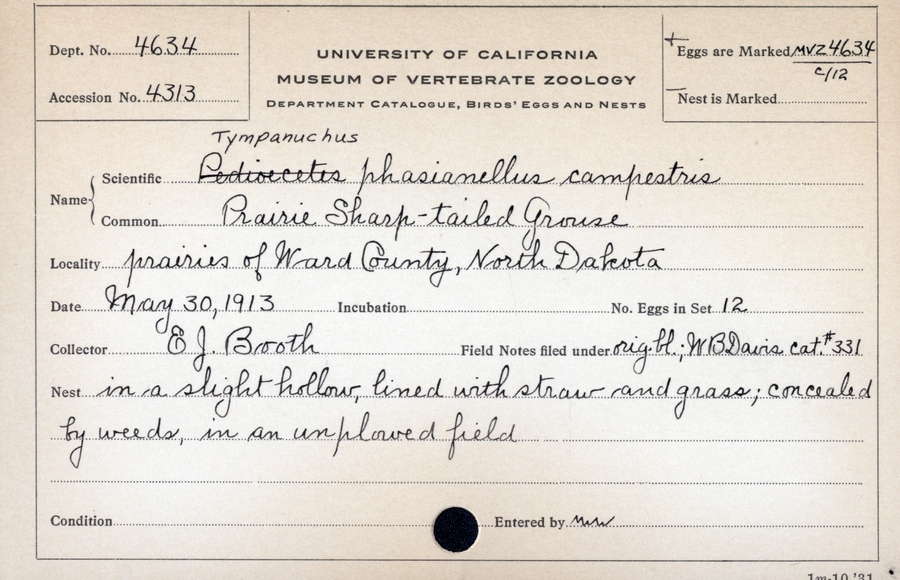 Dept. No. 4634
Accession No. 4313
UNIVERSITY OF CALIFORNIA
MUSEUM OF VERTEBRATE ZOOLOGY
DEPARTMENT CATALOGUE, BIRDS' EGGS AND NESTS
+ Eggs are Marked MVZ4634
c/12
– Nest is Marked
Tympanuchus
Name Scientific Pedioecetes phasianellus campestris
Common Prairie Sharp-tailed Grouse
Locality prairies of Ward County, North Dakota
Date May 30, 1913 Incubation No. Eggs in Set 12
Collector E J. Booth Field Notes filed under orig. bl.; WBDavis cat. #331
Nest in a slight hollow, lined with straw and grass; concealed
by weeds, in an unplowed field
Condition Entered by
1m-10,'31